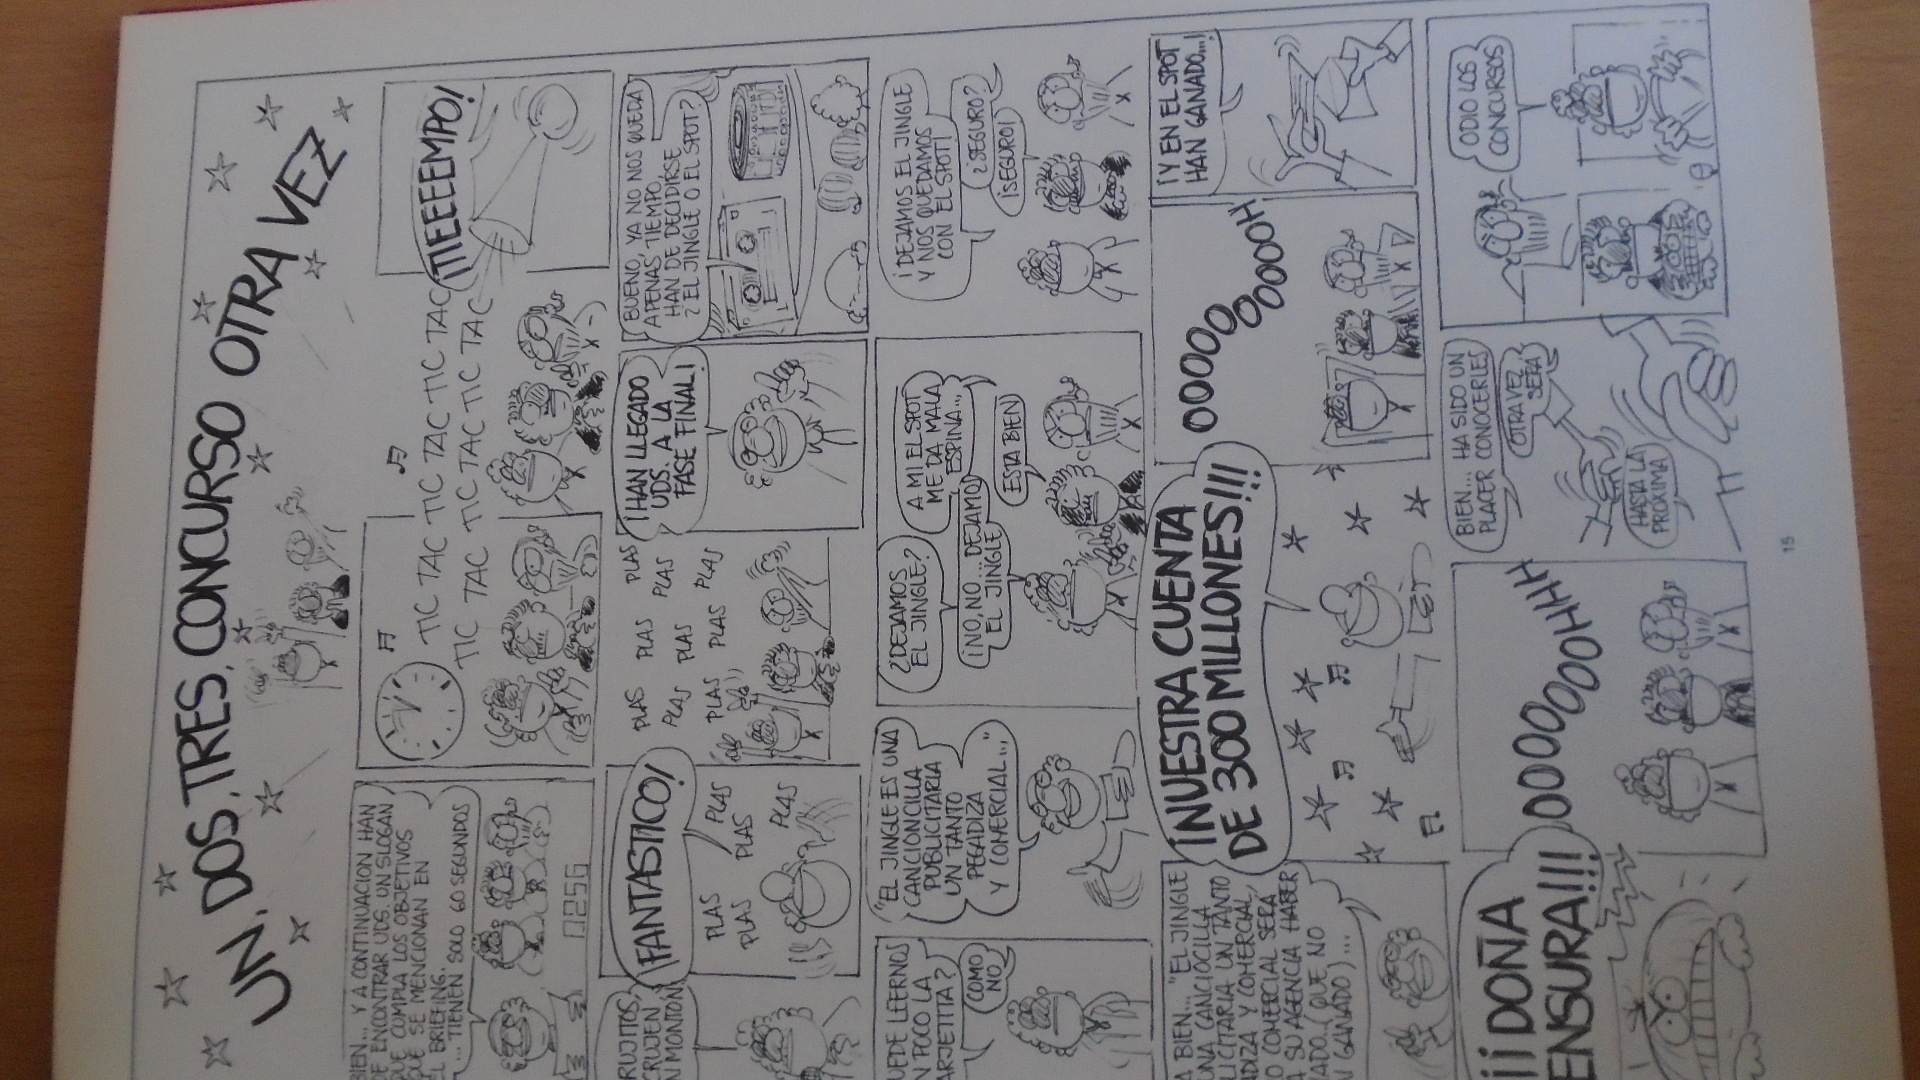 UN, DOS, TRES, CONCURSO OTRA VEZ
BIEN... Y A CONTINUACION HAN
DE ENCONTRAR UDS. UN SLOGAN
QUE CUMPLA LOS OBJETIVOS
QUE SE MENCIONAN EN
EL BRIEFING.
... TIENEN SOLO 60 SEGUNDOS
TIC TAC TIC TAC TIC TAC TIC TAC
TIC TAC TIC TAC TIC TAC TIC TAC
¡TIEEEEMPO!
¡FANTASTICO!
PLAS PLAS
PLAS PLAS
PLAS
PLAS PLAS PLAS
PLAS PLAS PLAS
PLAS PLAS PLAS
¡HAN LLEGADO
UDS. A LA
FASE FINAL!
BUENO, YA NO NOS QUEDA
APENAS TIEMPO,
HAN DE DECIDIRSE
¿EL JINGLE O EL SPOT?
POCO LA
COMO
NO
"EL JINGLE ES UNA
CANCIONCILLA
PUBLICITARIA
UN TANTO
PEGADIZA
Y COMERCIAL..."
¿DEJAMOS
EL JINGLE?
A MI EL SPOT
ME DA MALA
ESPINA...
¡NO, NO... DEJAMOS
EL JINGLE
ESTA BIEN
¡DEJAMOS EL JINGLE
Y NOS QUEDAMOS
CON EL SPOT!
¿SEGURO?
¡SEGURO!
BIEN... "EL JINGLE
UNA CANCIOCILLA
UN TANTO
Y COMERCIAL,
COMERCIAL SERA
SU AGENCIA HABER
(QUE NO
GANADO)...
¡NUESTRA CUENTA
DE 300 MILLONES!!!
OOOOOOOOOOOH
¡Y EN EL SPOT
HAN GANADO...!
¡¡¡DOÑA
ENSURA!!!
OOOOOOOOHHHH
BIEN... HA SIDO UN
PLACER CONOCERLES
OTRA VEZ
SERA
HASTA LA
PROXIMA
ODIO LOS
CONCURSOS
15